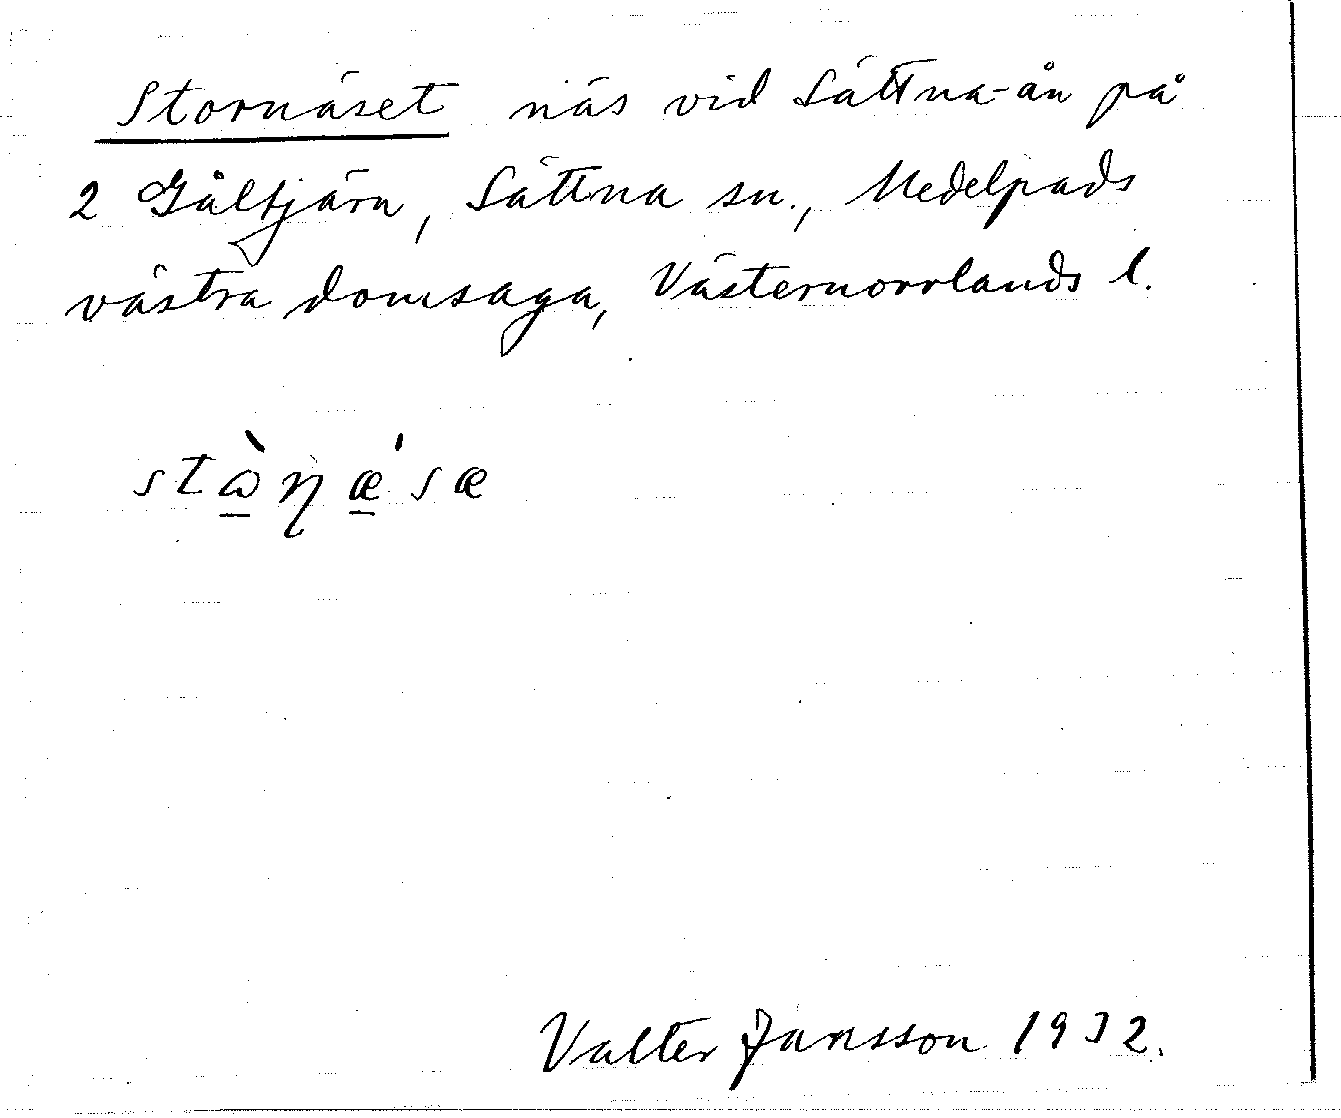 Stornäset näs vid Sättna-ån på
2 Gåltjärn, Sättna sn., Medelpads
västra domsaga, Västernorrlands l.
stὼɳǽsæ
Valter Jansson 1932.